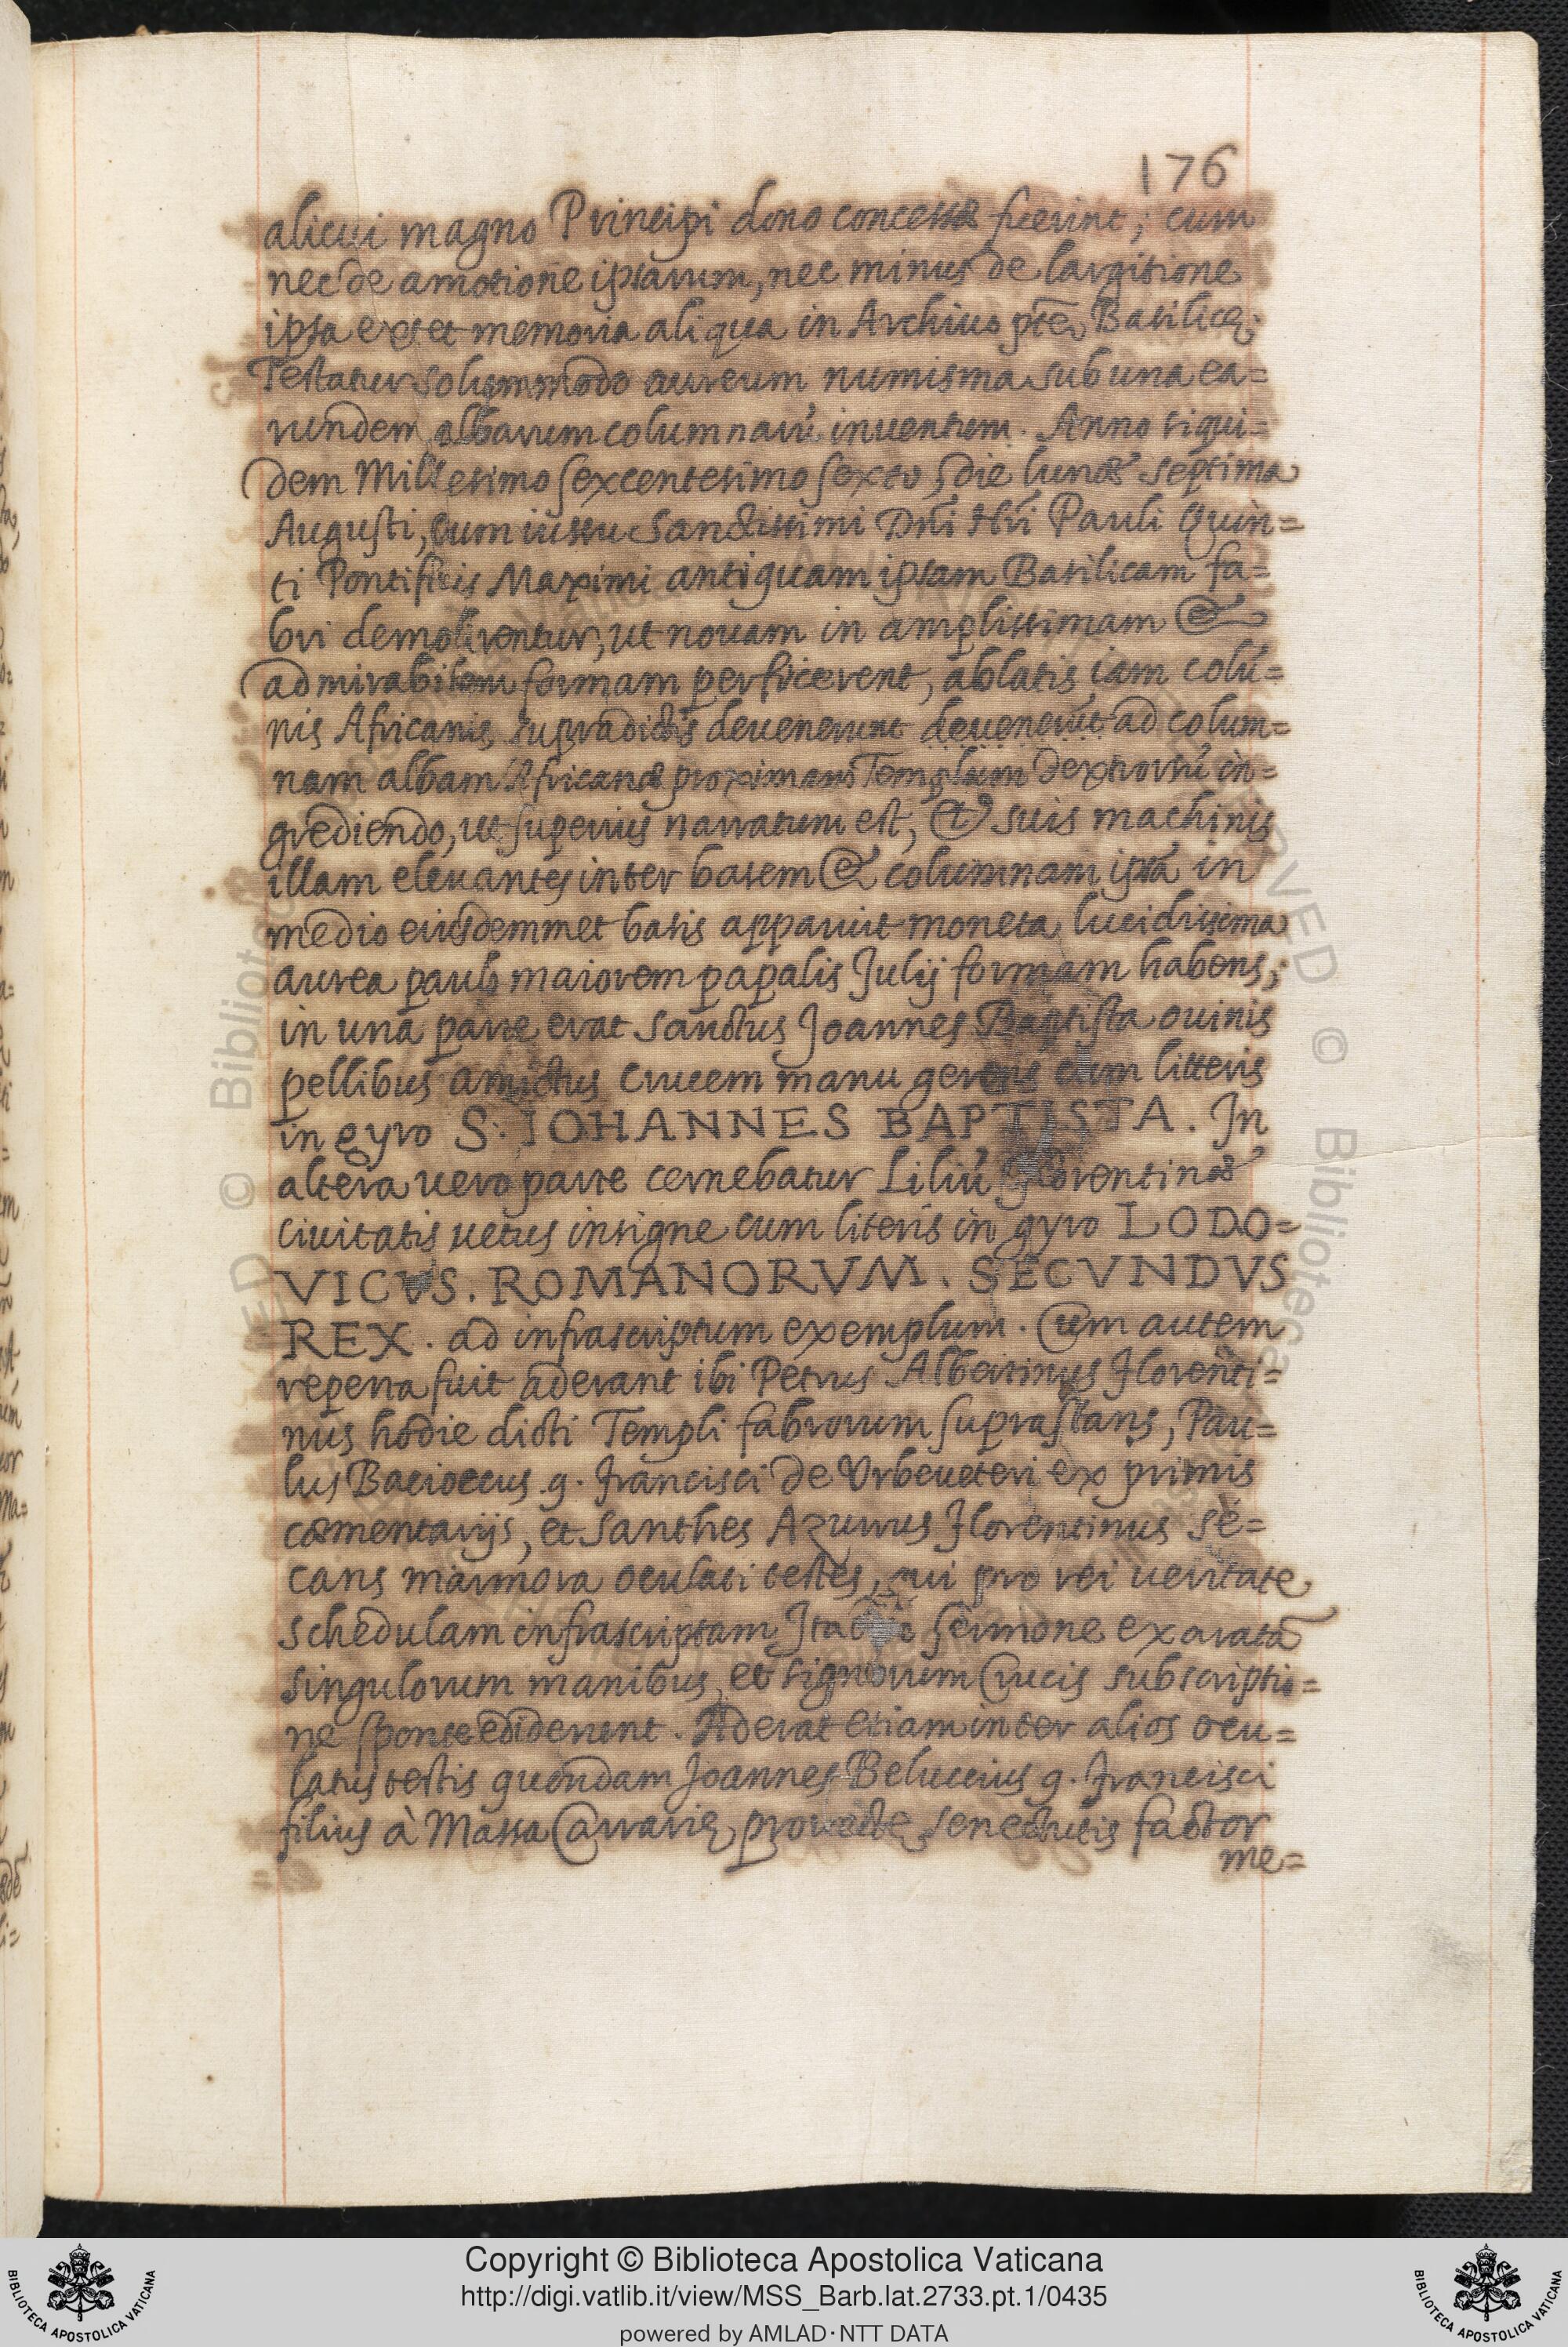 176
alicui magno Principi dono concessæ fuerint; cum
nec de amotione ipsarum, nec minus de largitione
ipsa extet memoria aliqua in Archiuo ptę Basilicę.
Testatur solummodo aureum numisma sub una ea=
rundem albarum columnarũ inuentum. Anno siqui=
dem Millesimo sexcentesimo sexto, die lunæ septima
Augusti, cum iussu Sanctissimi Dñi Nri Pauli Quin=
ti Pontificis Maximi antiquam ipsam Basilicam fa=
bri demolirentur, ut nouam in amplissimam &
admirabilem formam perficerent, ablatis iam colũ=
nis Africanis supradictis deuenerunt deuenerũt ad colum=
nam albam Africanæ proximam Templum dextrorsũ in=
grediendo, ut superius narratum est, & suis machinis
illam eleuantes inter basem & columnam ipsã in
medio eiusdemmet basis apparuit moneta lucidissima
aurea paulo maiorem papalis Julij formam habens;
in una parte erat Sanctus Joannes Baptista ouinis
pellibus amictus Crucem manu gerens cum litteris
in gyro S. IOHANNES BAPTISTA. In
altera uero parte cernebatur Liliũ Florentinæ
Ciuitatis uetus insigne cum literis in gyro LODO=
VICVS. ROMANORVM. SECVNDVS
REX. ad infrascriptum exemplum. Cum autem
reperta fuit aderant ibi Petrus Albertinus Florenti=
nus hodie dicti Templi fabrorum suprastans, Pau=
lus Bacioccus q. Francisci de Vrbeueteri ex primis
cæmentarijs, et Santhes Azurrus Florentinus se=
cans marmora oculati testes, qui pro rei ueritate
schedulam infrascriptam Italico sermone exaratã
singulorum manibus, et signorum Crucis subscriptio=
ne sponte ediderunt. Aderat etiam inter alios ocu=
latus testis quondam Joannes Beluccius q. Francisci
filius à Massa Carrarię prouectę senectutis factor
me=
Copyright © Biblioteca Apostolica Vaticana
http://digi.vatlib.it/view/MSS_Barb.lat.2733.pt.1/0435
powered by AMLAD·NTT DATA
BIBLIOTECA APOSTOLICA VATICANA
BIBLIOTECA APOSTOLICA VATICANA